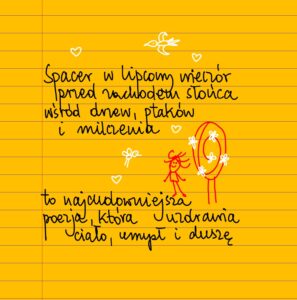 Spacer w lipcowy wieczór
przed zachodem słońca
wśród drzew, ptaków
i milczenia
to najcudowniejsza
poezja, która uzdrawia
ciało, umysł i duszę